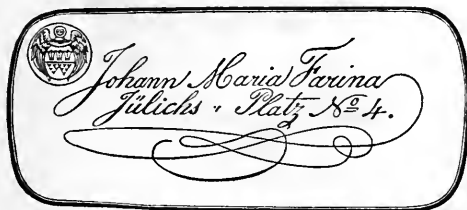 Johann Maria Farina
Jülichs - Platz No 4.